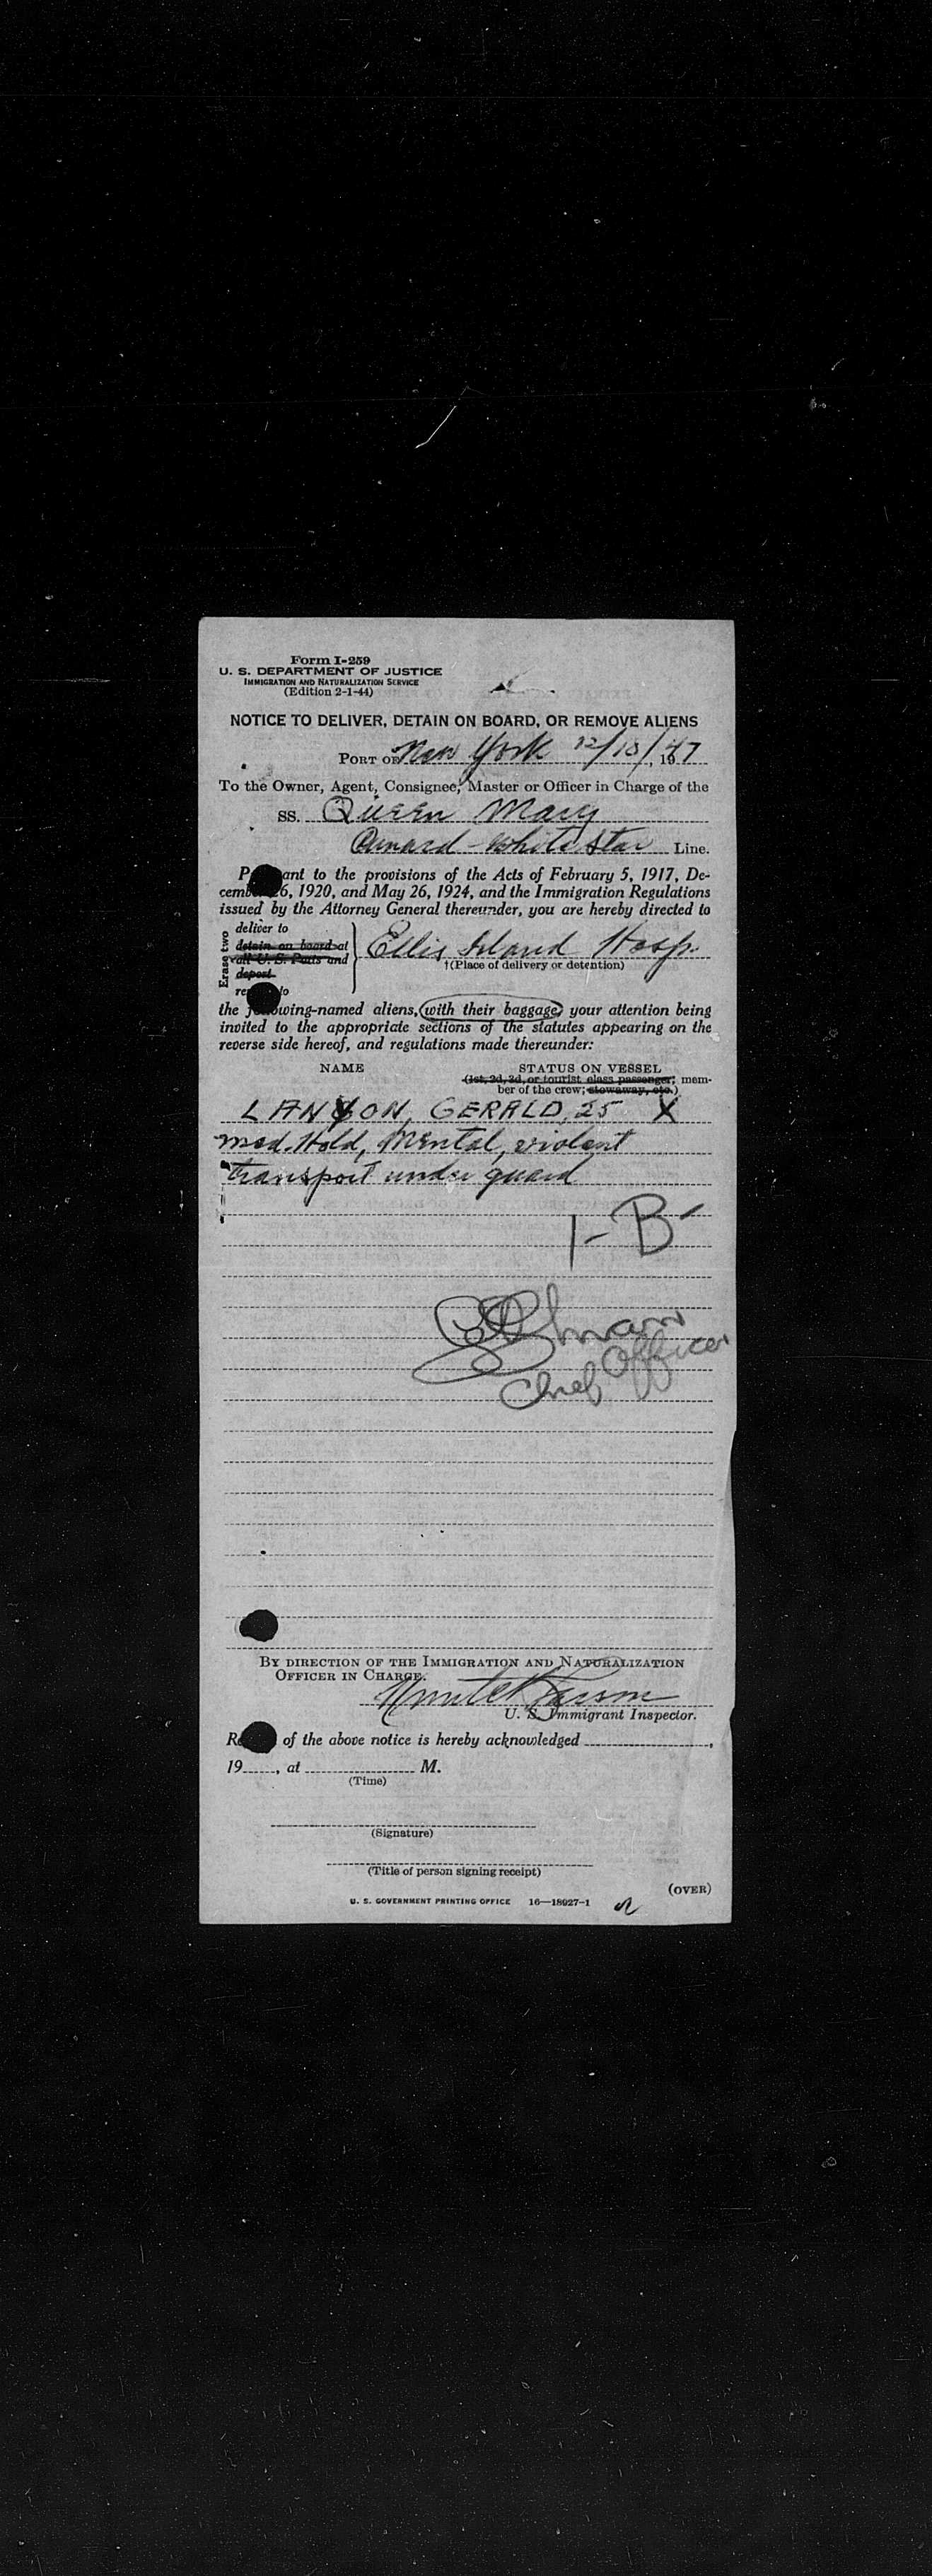 Form I-259
U. S. DEPARTMENT OF JUSTICE
IMMIGRATION AND NATURALIZATION SERVICE
(Edition 2-1-44)
NOTICE TO DELIVER, DETAIN ON BOARD, OR REMOVE ALIENS
PORT OF New York 12/18/, 1947
To the Owner, Agent, Consignee, Master or Officer in Charge of the
SS. Queen Mary
Cunard - White Star Line.
P ant to the provisions of the Acts of February 5, 1917, De-
cemb 6, 1920, and May 26, 1924, and the Immigration Regulations
issued by the Attorney General thereunder, you are hereby directed to
Erase two
deliver to
detain on board at
all U. S. Ports and
deport
re to
Ellis Island Hosp.
†(Place of delivery or detention)
the f owing-named aliens, with their baggage, your attention being
invited to the appropriate sections of the statutes appearing on the
reverse side hereof, and regulations made thereunder:
NAME STATUS ON VESSEL
(1st, 2d, 3d, or tourist class passenger; mem-
ber of the crew; stowaway, etc.)
LANYON, GERALD, 25 X
Med. Hold, Mental, violent
transport under guard
1- B-
Chief Officer
BY DIRECTION OF THE IMMIGRATION AND NATURALIZATION
OFFICER IN CHARGE.
U. S. Immigrant Inspector.
Re of the above notice is hereby acknowledged ,
19 , at M.
(Time)
(Signature)
(Title of person signing receipt)
(OVER)
U. S. GOVERNMENT PRINTING OFFICE 16—18927-1